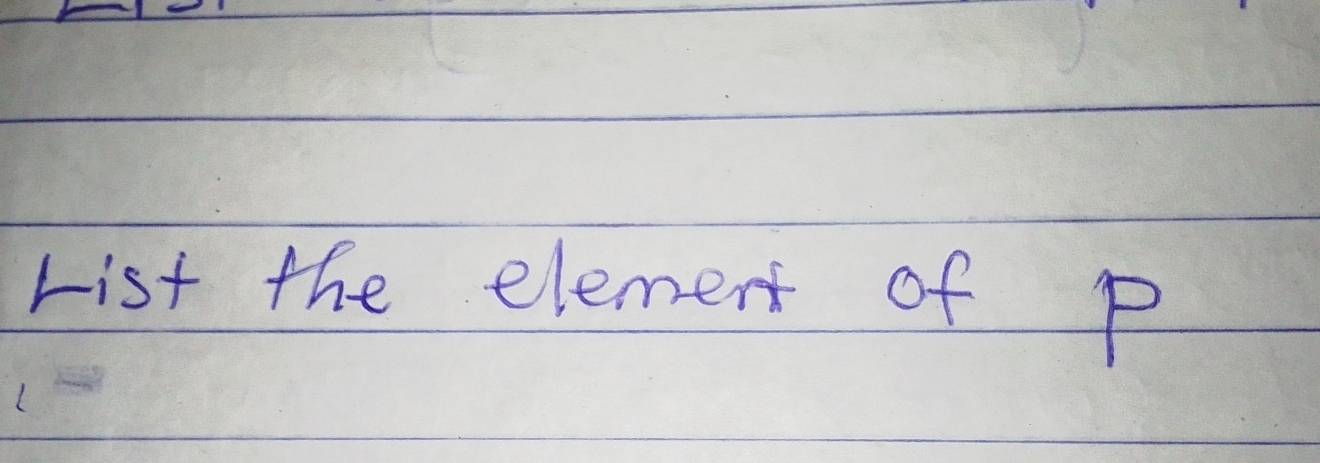 List the element of p